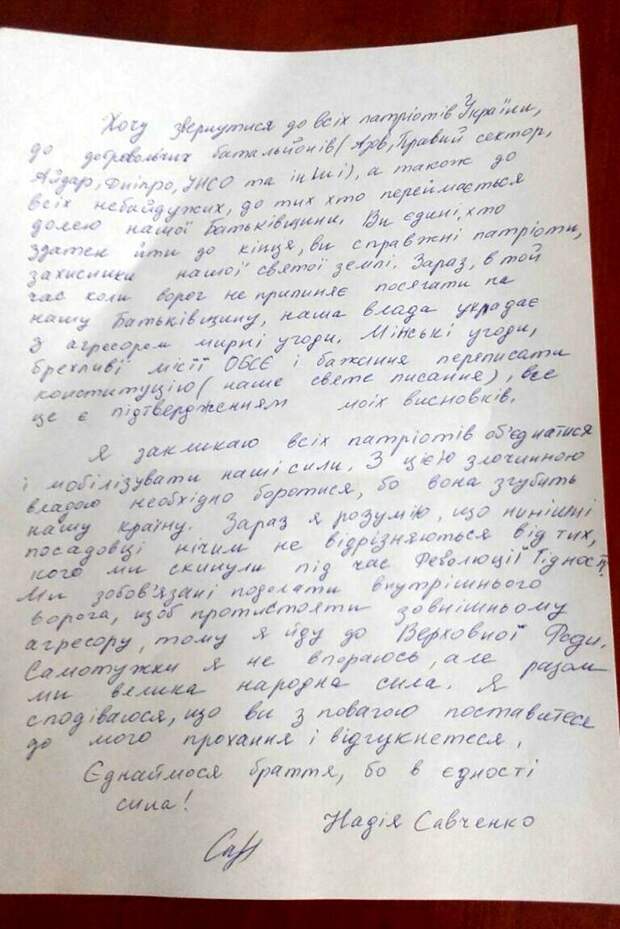 Хочу звернутися до всіх патріотів України,
до добровольчих батальйонів (Азов, Правий сектор,
Айдар, Дніпро, УНСО та інші), а також до
всіх небайдужих, до тих хто переймається
долею нашої Батьківщини. Ви єдині, хто
здатен йти до кінця, ви справжні патріоти,
захисники нашої святої землі. Зараз, в той
час коли ворог не припиняє посягати на
нашу Батьківщину, наша влада укладає
з агресором мирні угоди. Мінські угоди,
брехливі місії ОБСЄ і бажання переписати
конституцію (наше святе писання), все
це є підтвердженням моїх висновків.
Я закликаю всіх патріотів об'єднатися
і мобілізувати наші сили. З цією злочинною
владою необхідно боротися, бо вона згубить
нашу країну. Зараз я розумію, що нинішні
посадовці нічим не відрізняються від тих,
кого ми скинули під час Революції Гідності.
Ми зобов'язані подолати внутрішнього
ворога, щоб протистояти зовнішньому
агресору, тому я йду до Верховної Ради.
Самотужки я не впораюсь, але разом
ми велика народна сила. Я
сподіваюся, що ви з повагою поставитеся
до мого прохання і відгукнетеся.
Єднаймося браття, бо в єдності
сила!
Надія Савченко